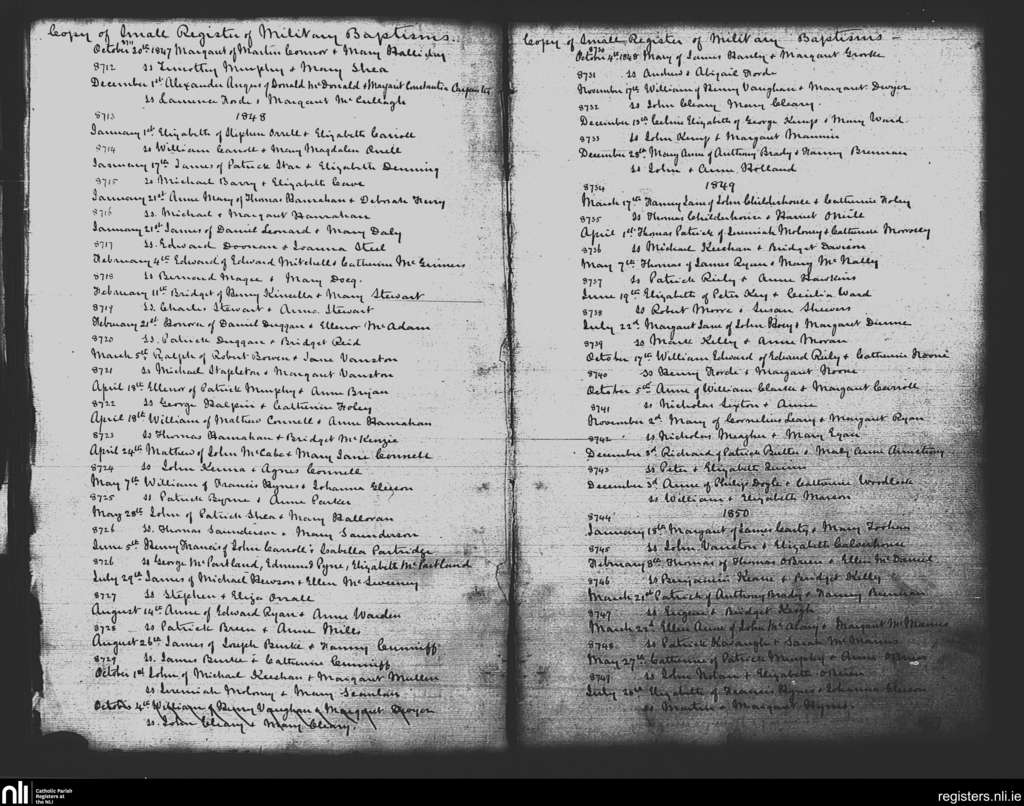 Copy of Small Register of Military Baptisms.
8711
October 20th 1847 Margaret of Martin Connor & Mary Halliday
8712 Ss Timothy Murphy & Mary Shea
December 1st Alexander Angus of Donald McDonald & Margaret Constantia Carpenter
Ss Laurence Forde & Margaret McCullagh
8713 1848
January 1st Elizabeth of Stephen Orrell & Elizabeth Carroll
8714 Ss William Carroll & Mary Magdalen Orrell
January 17th James of Patrick Star & Elizabeth Denning
8715 Ss Michael Barry & Elizabeth Cave
January 21st Anne Mary of Thomas Hanrahan & Deborah Terry
8716 Ss. Michael & Margaret Hanrahan
January 21st James of Daniel Leonard & Mary Daly
8717 Ss. Edward Doonan & Joanna Steel
February 4th Edward of Edward Mitchell & Catherine McGuiness
8718 Ss Bernard Magee & Mary Doeg.
February 11th Bridget of Henry Kinsella & Mary Stewart
8719 Ss. Charles Stewart & Anne Stewart
February 21st Honora of Daniel Duggan & Ellenor McAdam
8720 Ss. Patrick Duggan & Bridget Reid
March 5th Ralph of Robert Bowen & Jane Vanston
8721 Ss Michael Stapleton & Margaret Vanston
April 18th Ellenor of Patrick Murphy & Anne Bryan
8722 Ss George Halpin & Catherine Foley
April 18th William of Mathew Connell & Anne Hanrahan
8723 Ss Thomas Hanrahan & Bridget McKenzie
April 24th Mathew of John McCabe & Mary Jane Connell
8724 Ss John Kenna & Agnes Connell
May 7th William of Francis Hynes & Johanna Gleeson
8725 Ss Patrick Byrne & Anne Parker
May 28th John of Patrick Shea & Mary Halloran
8726 Ss. Thomas Saunderson & Mary Saunderson
June 5th Henry Francis of John Carroll & Isabella Partridge
8726 Ss George McPartland, Edmund Pyne, Elizabeth McPartland
July 29th James of Michael Hewson & Ellen McSweeny
8727 Ss Stephen & Eliza Orrall
August 14th Anne of Edward Ryan & Anne Warden
8728 Ss Patrick Breen & Anne Miles
August 26th James of Joseph Burke & Fanny Cunniff
8729 Ss. James Burke & Catherine Cunniff
October 1st John of Michael Keeshan & Margaret Mullen
Ss Jeremiah Molony & Mary Scanlan
October 4th William of Henry Vaughan & Margaret Dwyer
Ss. John Cleary & Mary Cleary.
Copy of Small Register of Military Baptisms
8730
October 4th 1848 Mary of James Hanly & Margaret Groke
8731 Ss Andrew & Abigail Forde
November 17th William of Henry Vaughan & Margaret Dwyer
8732 Ss John Cleary Mary Cleary.
December 13th Celina Elizabeth of George Kemp & Mary Ward
8733 Ss John Kemp & Margaret Mannin
December 28th Mary Anne of Anthony Brady & Fanny Brennan
Ss John & Anne Holland
8734 1849
March 17th Fanny Jane of John Childerhouse & Catherine Foley
8735 Ss Thomas Childerhouse & Harriet O'Neill
April 1st Thomas Patrick of Jeremiah Molony & Catherine Morrosey
8736 Ss Michael Keeshan & Bridget Davison
May 7th Thomas of James Ryan & Mary McNally
8737 Ss Patrick Reily & Anne Hawkins
June 19th Elizabeth of Peter Key & Cecilia Ward
8738 Ss Robert Moore & Susan Sheevers
July 22d Margaret Jane of John Boey & Margaret Dunne
8739 Ss Mark Kelly & Anne Moran
October 17th William Edward of Edward Reily & Catherine Noone
8740 Ss Henry Forde & Margaret Noone
October 5th Anne of William Clarke & Margaret Carroll
8741 Ss Nicholas Sexton & Anne
November 2d Mary of Cornelius Leary & Margaret Ryan
8742 Ss Nicholas Meagher & Mary Egan
December 3d Richard of Patrick Butler & Mary Anne Armstrong
8743 Ss Peter & Elizabeth Quinn
December 3d Anne of Philip Doyle & Catherine Woodlock
Ss William & Elizabeth Marson
8744 1850
January 18th Margaret of James Carty & Mary Toohan
8745 Ss John Vanston & Elizabeth Calverhouse
February 8th Thomas of Thomas O'Brien & Ellen McDaniel
8746 Ss Benjamin Keane & Bridget Kelly
March 21st Patrick of Anthony Brady & Fanny Brennan
8747 Ss Eugene & Bridget Keogh
March 22d Ellen Anne of John McAlary & Margaret McManus
8748 Ss Patrick Kavanagh & Sarah McManus
May 27th Catherine of Patrick Murphy & Anne O'Brien
8749 Ss John Nolan & Elizabeth O'Brien
July 28th Elizabeth of Francis Hynes & Johanna Gleeson
Ss Martin & Margaret Hynes.
nli Catholic Parish
Registers at
the NLI
registers.nli.ie